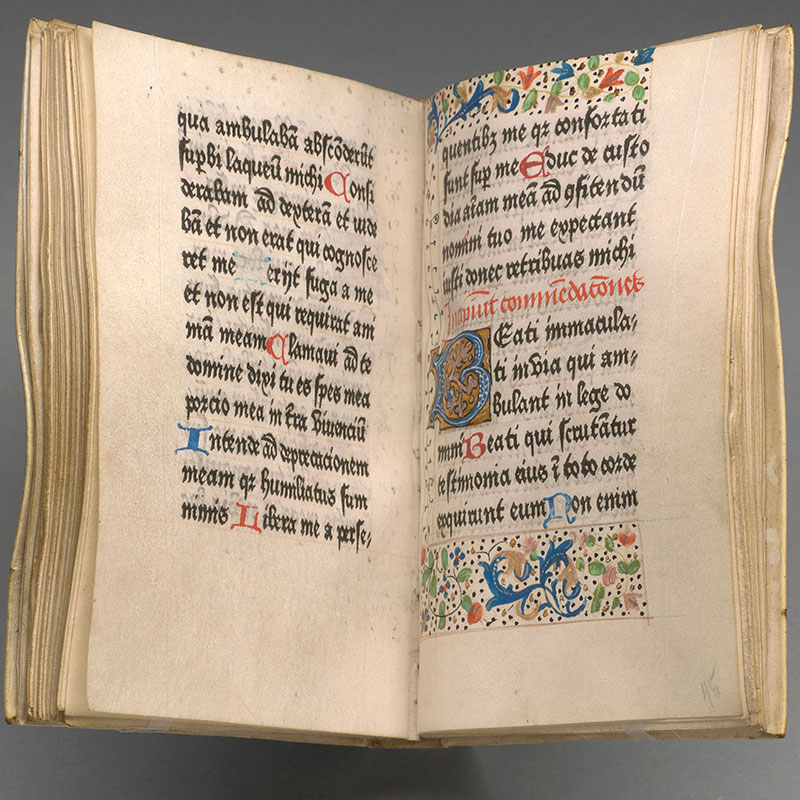 qua ambulabā abscōderūt
supbi laqueū michi Consi
derabam ad dexterā et vide
bā et non erat qui cognosce
ret me Perijt fuga a me
et non est qui requirat ani
mā meam Clamaui ad te
domine dixi tu es spes mea
porcio mea in tra viuenciū
Intende ad deprecacionem
meam qr humiliatus sum
nimis Libera me a perse-
quentibz me qr confortati
sunt sup me Educ de custo
dia aīam meā ad ꝯfitendū
nomini tuo me expectant
iusti donec retribuas michi
Incipiūt commēdacōnes
BEati immacula-
ti in via qui am-
bulant in lege do
mini Beati qui scrutātur
testimonia eius ī toto corde
exquirunt eum Non enim